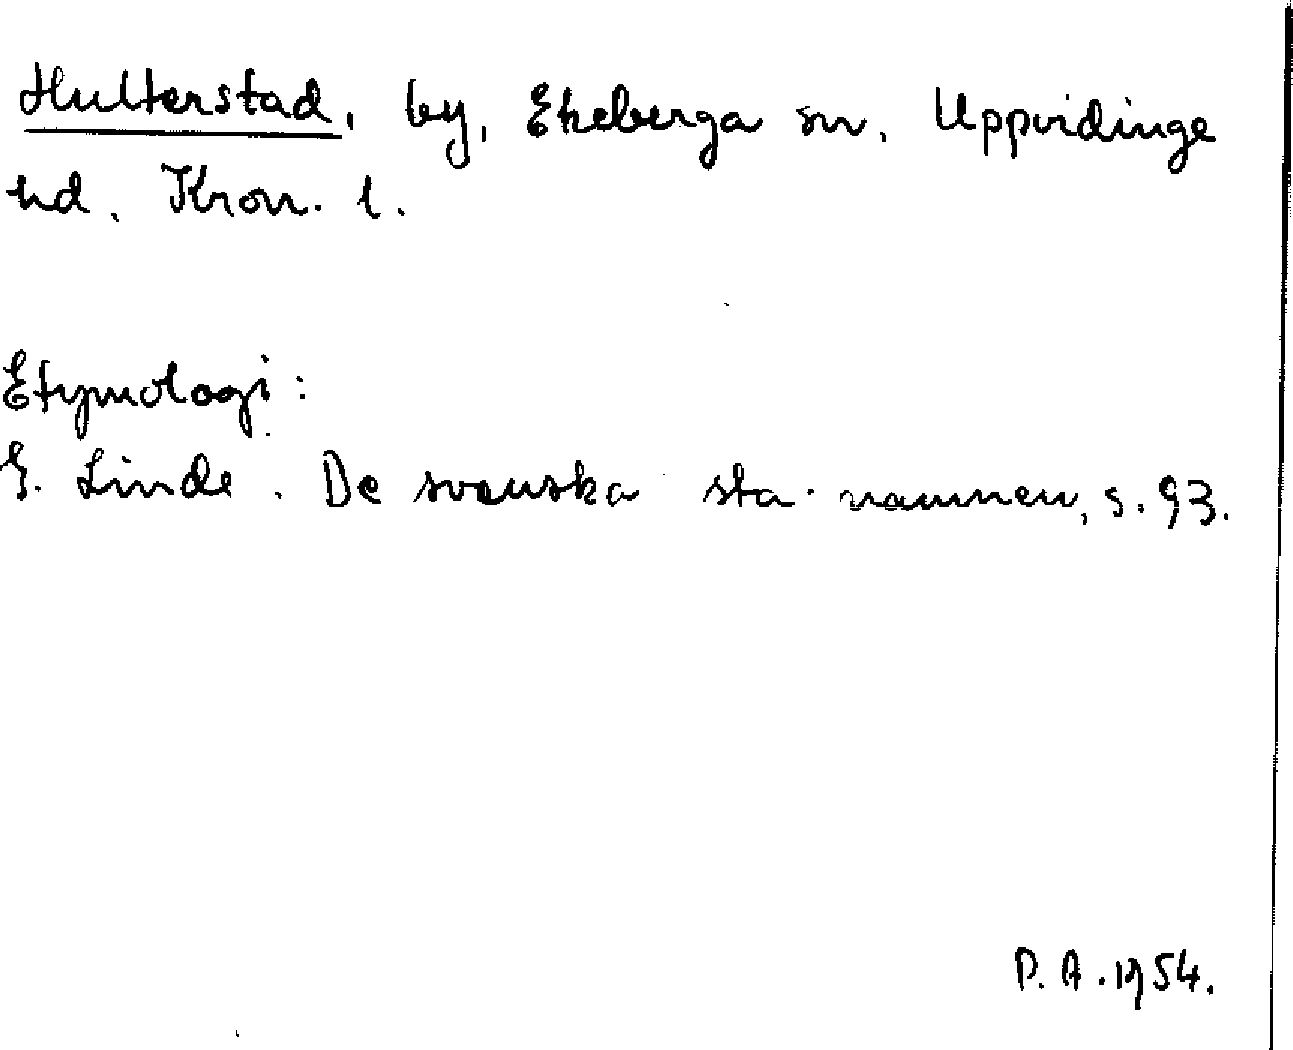 Hulterstad, by, Ekeberga sn. Uppvidinge
hd. Kron. l.
Etymologi:
G. Linde. De svenska sta-namnen, s. 93.
P. A. 1954.